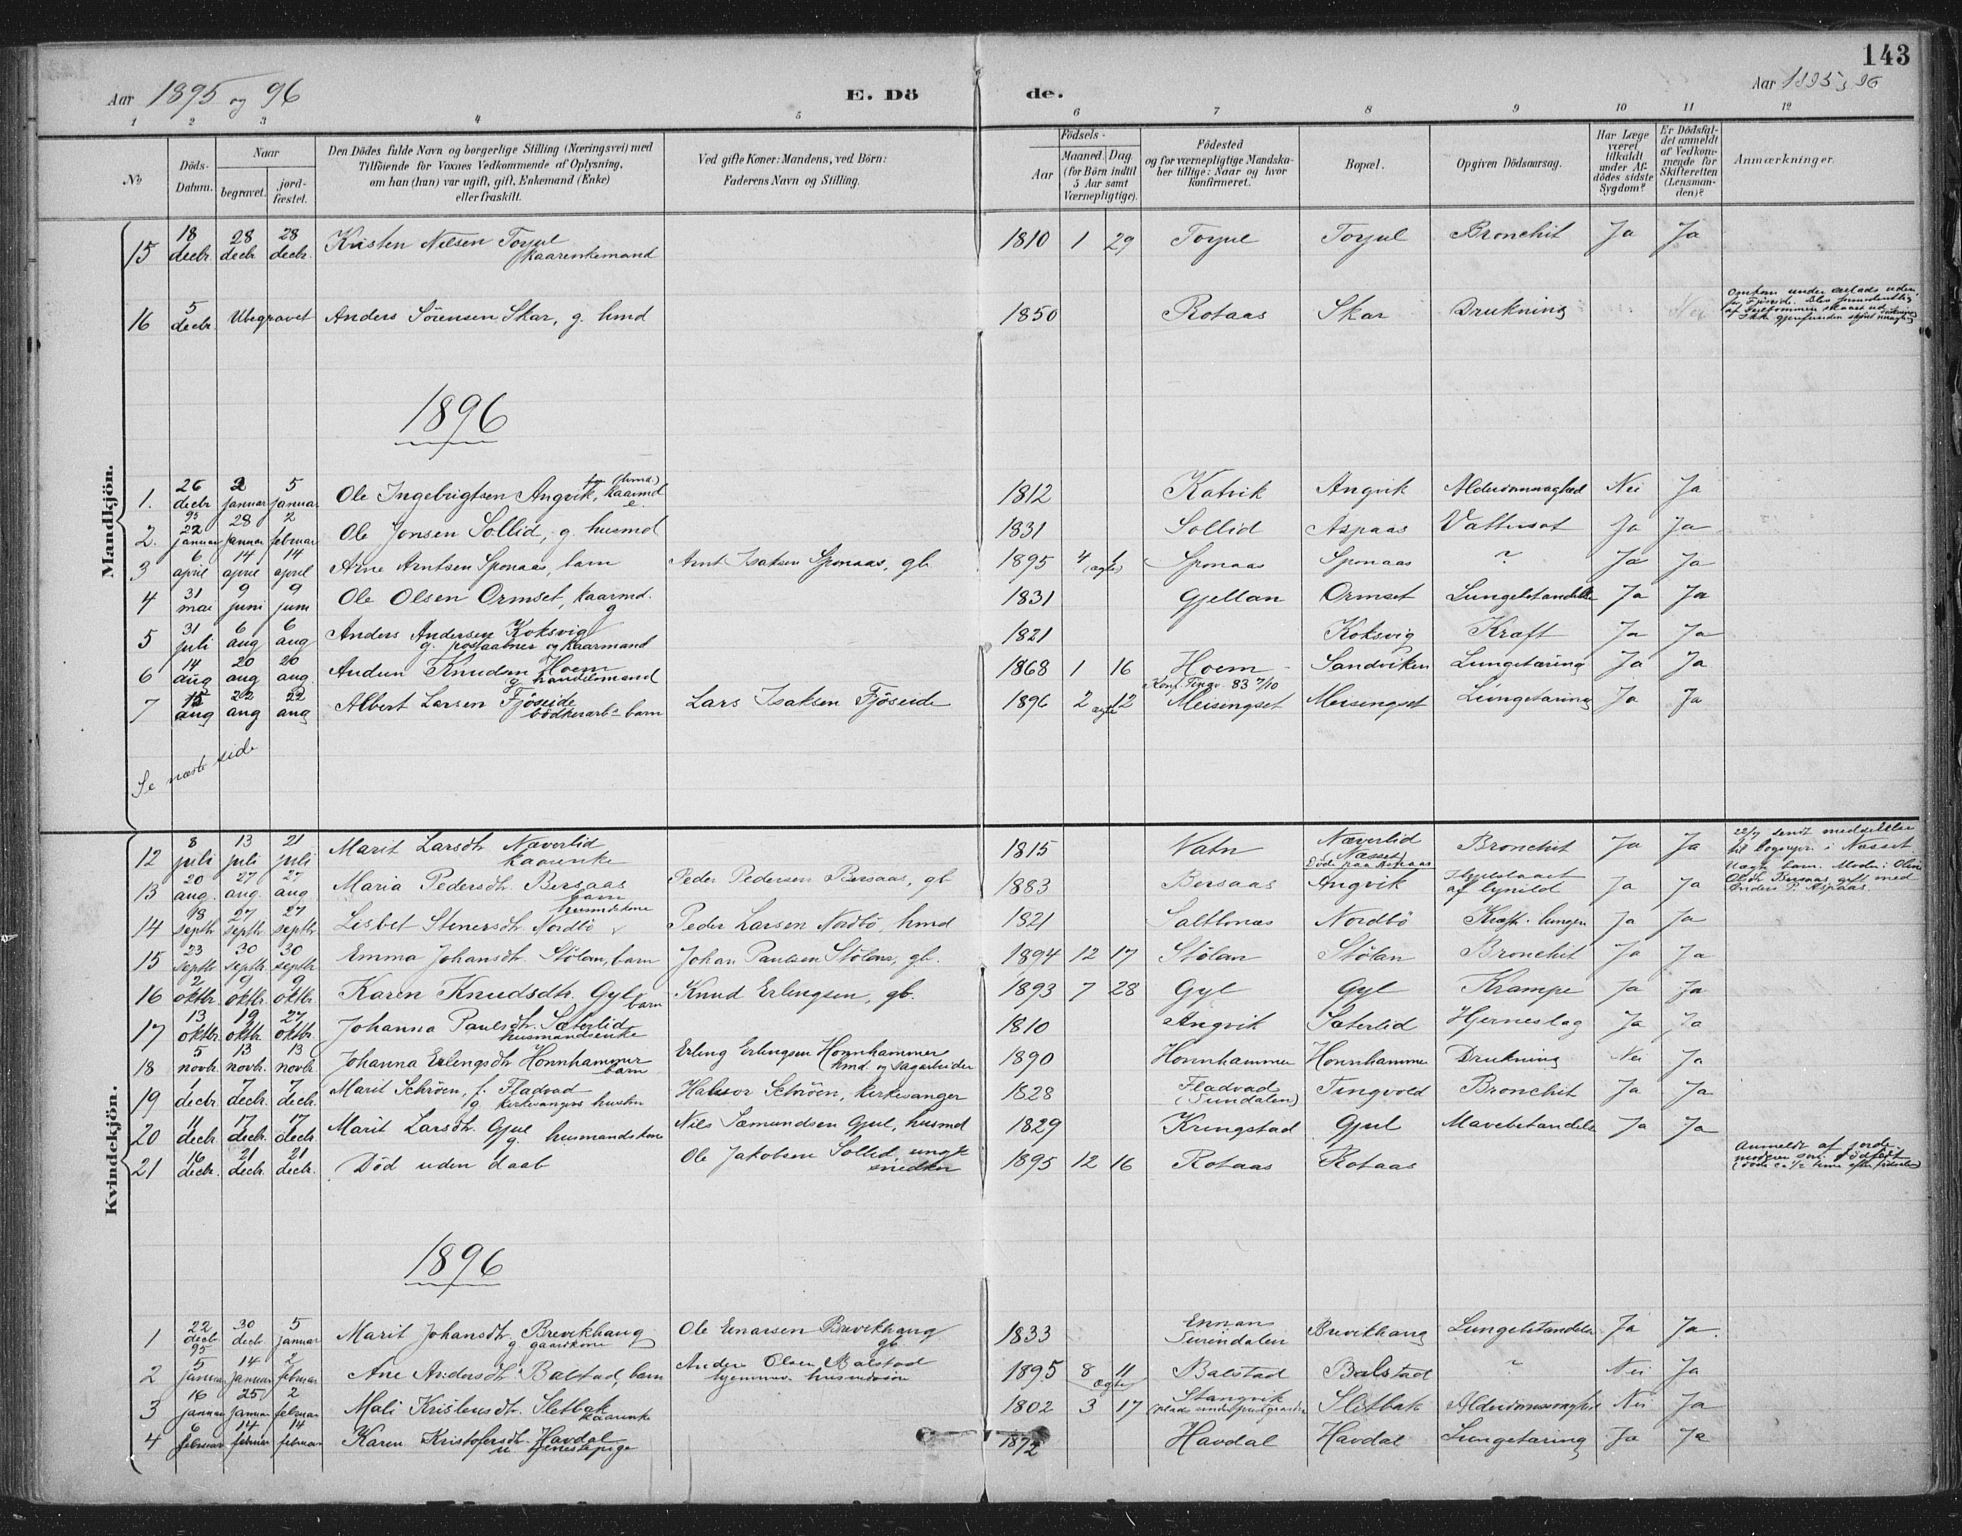 143
Aar 1895 og 96
E. Dö
de.
Aar 1895 og 96
1 2 3 4 5 6 7 8 9 10 11 12
No
Döds-Datum.
Naar
begravet.
jordfæstet.
Den Dödes fulde Navn og borgerlige Stilling (Næringsvei) med
Tilföiende for Voxnes Vedkommende af Oplysning,
om han (hun) var ugift, gift, Enkemand (Enke)
eller fraskilt.
Ved gifte Koner: Mandens, ved Börn:
Faderens Navn og Stilling.
Födsels-
Aar
Maaned. Dag
(for Börn indtil
5 Aar samt
Værnepligtige).
Födested
og for værnepligtige Mandska-
ber tillige: Naar og hvor
konfirmeret.
Bopæl.
Opgiven Dödsaarsag.
Har Læge
været
tilkaldt
under Af-
dödes sidste
Sygdom?
Er Dödsfal-
det anmeldt
af Vedkom-
mende for
Skifteretten
(Lensman-
den)?
Anmærkninger.
Mandkjön.
15 18 decbr. 28 decbr. 28 decbr. Kristen Nilsen Torjul kaarenkemand 1810 1 29 Torjul Torjul Bronchit Ja Ja
16 5 decbr. Ubegravet Anders Sörensen Skar, g. hmd 1850 Rotaas Skar Drukning Nei
1896
1. 26 decbr 95 2 januar 5 januar Ole Ingebrigtsen Angvik, kaarmd e. 1812 Katvik Angvik Alderdomssvaghed Nei Ja
2. 22 januar 28 januar 2 februar Ole Jonsen Sollid, g. husmd 1831 Sollid Aspaas Vattersot Ja Ja
3 6 april 14 april 14 april Arne Arntsen Sponaas, barn Arnt Isaksen Sponaas, gb. 1895 4 1 (ægte) Sponaas Sponaas ? Ja Ja
4 31 mai 9 juni 9 juni Ole Olsen Ormset, kaarmd. g 1831 Gjellan Ormset Lungebetændelse Ja Ja
5 31 juli 6 aug 6 aug Anders Andersen Koksvig g. postaabner og kaarmand 1821 Koksvig Kræft Ja Ja
6 14 aug 20 aug 20 aug. Audun Knudsen Hoem g. handelsmand 1868 1 16 Hoem Sandviken Lungetæring Ja Ja
Konf. Tingv. 83 7/10
7 15 aug 22 aug 22 aug Albert Larsen Fjöseide bödkerarb. barn Lars Isaksen Fjöseide 1896 2 12 ægte Meisingset Meisingset Lungetæring Ja Ja
Se næste side
Kvindekjön.
12 8 juli 13 juli 21 juli Marit Larsdtr. Næverlid kaarenke 1815 Vatn Næverlid Næsset Döde paa Aspaas Bronchit Ja Ja
13 20 aug. 27 aug. 27 aug Maria Pedersdtr. Bersaas barn Peder Pedersen Bersaas, gb 1883 Bersaas Angvik af lynild Ja Ja
14 18 septbr 27 septbr 27 septbr Lisbet Stenersdtr. Nordbö husmdskone Peder Larsen Nordbö, hmd 1821 Saltbonæs Nordbö Kræft i lungen Ja Ja
15 23 septbr 30 septbr. 30 septbr Emma Johansdtr. Stölan, barn Johan Paulsen Stölan, gb. 1894 12 17 Stölan Stölan Bronchit Ja Ja
16 2 oktbr. 9 oktbr. 9 oktbr. Karen Knudsdtr. Gyl barn Knud Erlingsen, gb. 1893 7 28 Gyl Gyl Krampe Ja Ja
17 13 oktbr. 19 oktbr. 27 oktbr. Johanna Paulsdtr. Sæterlid husmandsenke 1810 Angvik Sæterlid Hjerneslag Ja Ja
18 5 novbr. 13 novbr. 13 novbr Johanna Erlingsdtr. Honnhammer barn Erling Erlingsen Honnhammer hmd. og sagarbeider 1890 Honnhammer Honnhammer Drukning Nei Ja
19 1 decbr. 7 decbr. 7 decbr. Marit Schröen, f. Fladvad g kirkesangers hustru Halvor Schröen, kirkesanger 1828 Fladvad (Sundalen) Tingvold Bronchit Ja Ja
20 11 decbr 17 decbr. 17 decbr. Marit Larsdtr. Gjul g. husmandskone Nils Sæmundsen Gjul, husmd 1829 Kringstad Gjul Mavebetændelse Ja Ja
21 16 decbr. 21 decbr. 21 decbr. Död uden daab Ole Jakobsen Sollid, ungk. snedker 1895 12 16 Rotaas Rotaas
1896
1 22 decbr 95 30 decbr 5 januar Marit Johansdtr. Brevikhaug g gaardkone Ole Einarsen Brevikhaug gb 1833 Ennan Surendalen Brevikhaug Lungebetændelse Ja Ja.
2 5 januar 14 januar 2 februar Ane Andersdtr. Balstad, barn Anders Olsen Balstad hjemmev. husmdssön 1895 8 11 ægte Balstad Balstad ? Nei Ja
3 16 januar 25 januar 2 februar Mali Kristensdtr. Sletbak kaarenke 1802 3 17 Stangvik Sletbak Alderdomssvaghed Nei Ja
4 6 februar 14 februar 14 februar Karen Kristofersdtr. Havdal u tjenestepige 1872 Havdal Havdal Lungetæring Ja Ja